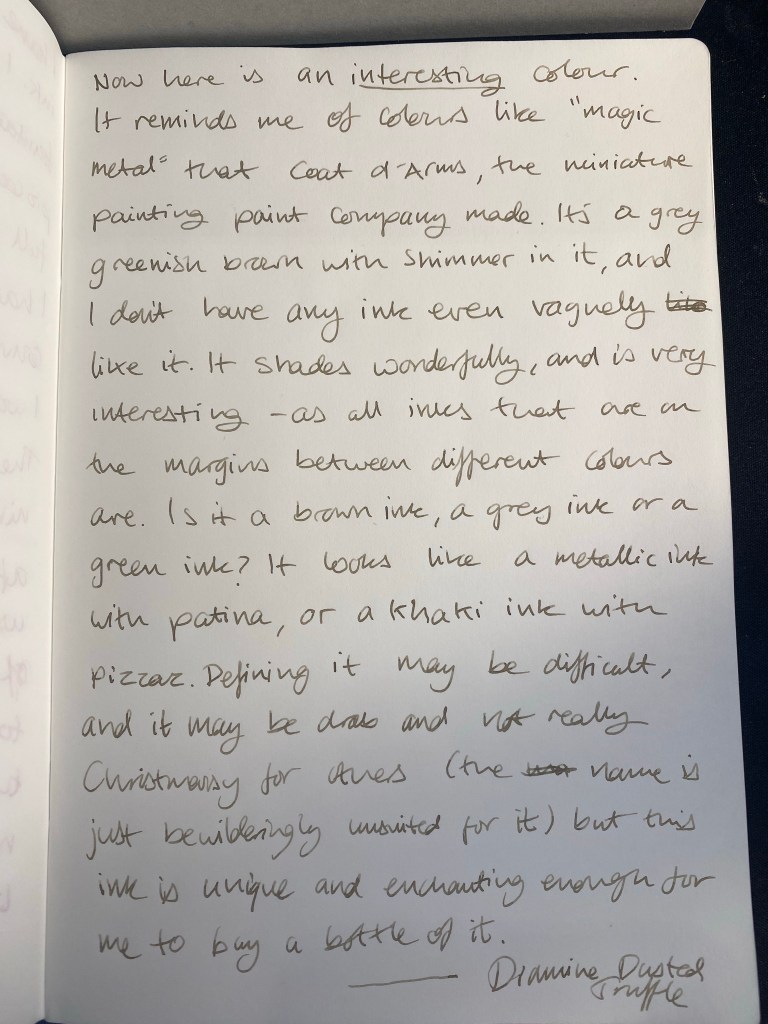 Now here is an interesting colour.
It reminds me of colours like "magic
metal" that Coat d-Arms, the miniature
painting paint company made. It's a grey
greenish brown with shimmer in it, and
I don't have any ink even vaguely
like it. It shades wonderfully, and is very
interesting - as all inks that are on
the margins between different colours
are. Is it a brown ink, a grey ink or a
green ink? It looks like a metallic ink
with patina, or a khaki ink with
pizzaz. Defining it may be difficult,
and it may be drab and not really
Christmassy for others (the name is
just bewilderingly unsuited for it) but this
ink is unique and enchanting enough for
me to buy a bottle of it.
Diamine Dusted
Truffle